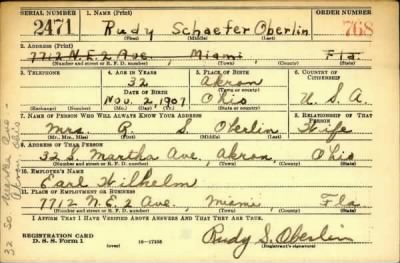 SERIAL NUMBER 1. NAME (Print) ORDER NUMBER
2471 Rudy Schaefer Oberlin 768
(First) (Middle) (Last)
2. ADDRESS (Print)
7712 N.E. 2 Ave. Miami Fla.
(Number and street or R. F. D. number) (Town) (County) (State)
3. TELEPHONE 4. AGE IN YEARS 5. PLACE OF BIRTH 6. COUNTRY OF CITIZENSHIP
32 Akron
(Town or county)
DATE OF BIRTH
Nov. 2, 1907 Ohio U.S.A.
(Exchange) (Number) (Mo.) (Day) (Yr.) (State or country)
7. NAME OF PERSON WHO WILL ALWAYS KNOW YOUR ADDRESS 8. RELATIONSHIP OF THAT PERSON
Mrs. R. S. Oberlin Wife
(Mr., Mrs., Miss) (First) (Middle) (Last)
9. ADDRESS OF THAT PERSON
32 S. Martha Ave, Akron, Ohio
(Number and street or R. F. D. number) (Town) (County) (State)
10. EMPLOYER'S NAME
Earl Wilhelm
11. PLACE OF EMPLOYMENT OR BUSINESS
7712 N.E. 2 Ave. Miami, Fla.
(Number and street or R. F. D. number) (Town) (County) (State)
I AFFIRM THAT I HAVE VERIFIED ABOVE ANSWERS AND THAT THEY ARE TRUE.
REGISTRATION CARD
D. S. S. Form 1 16—17105 Rudy S. Oberlin
32 So Martha Ave -